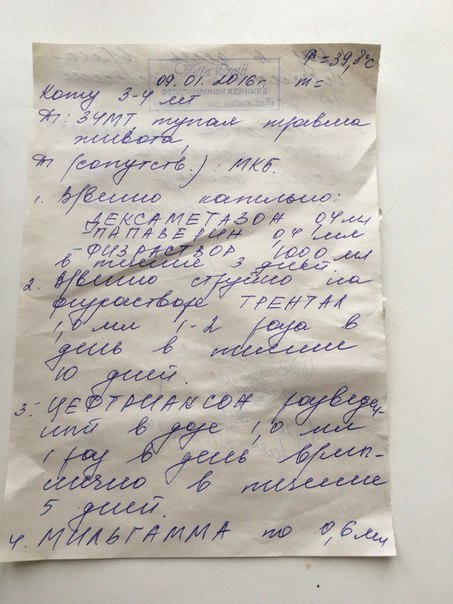 t°=39,8°C
09.01.2016г. m=
Коту 3-4 лет
D: ЗЧМТ, тупая травма
живота,
D (сопутств.): МКБ.
1. В/венно капельно:
ДЕКСАМЕТАЗОН 0,4 мл
ПАПАВЕРИН 0,4 мл
ФИЗРАСТВОР 100,0 мл
в течение 3 дней.
2. В/венно струйно на
физрастворе ТРЕНТАЛ
1,0 мл 1-2 раза в
день в течение
10 дней.
3. ЦЕФТРИАКСОН разведен
ный в дозе 1,0 мл
1 раз в день в/мы-
шечно в течение
5 дней.
4. МИЛЬГАММА по 0,6 мл